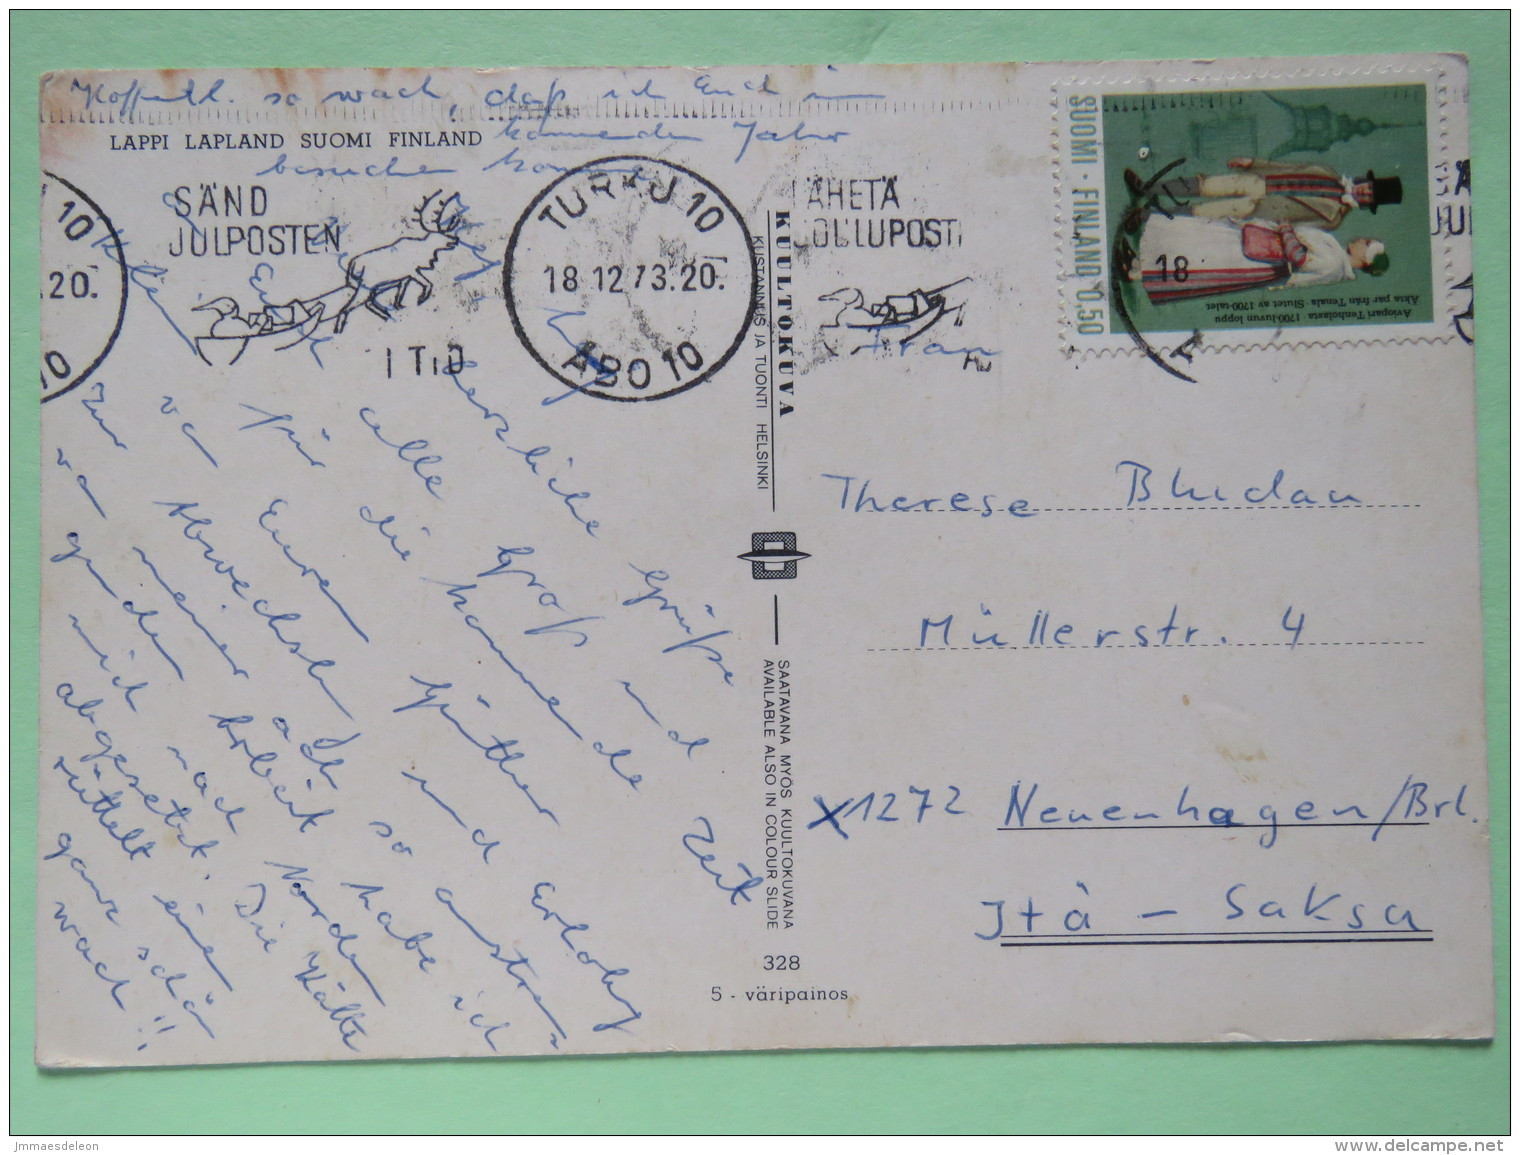 Hoffentl. so wach, daß ich Euch im
kommenden Jahr
besuchen
LAPPI LAPLAND SUOMI FINLAND
SÄND
JULPOSTEN
I TID
TURKU 10
18.12.73.20.
ÅBO 10
LÄHETÄ
JOULUPOSTI
10
.20.
10
SUOMI · FINLAND 0,50
Aviopari Tenholasta · 1700-luvun loppu
Äkta par från Tenala · Slutet av 1700-talet
18
herzliche Grüße und
alle Große
für die kommende Zeit
va Euren Götter und Erfolg
Zur Abwechslung
va meiner Arbeit habe ich
mich nach Norden
abgesetzt. Die Kälte
rüttelt einen
ganz schön
wach!!
KUULTOKUVA
KUSTANNUS JA TUONTI HELSINKI
SAATAVANA MYÖS KUULTOKUVANA
AVAILABLE ALSO IN COLOUR SLIDE
328
5 - väripainos
Frau
Therese
Müllerstr. 4
X1272 Neuenhagen/Brl.
Itä - Saksa
jmmaesdeleon
http://www.delcampe.net